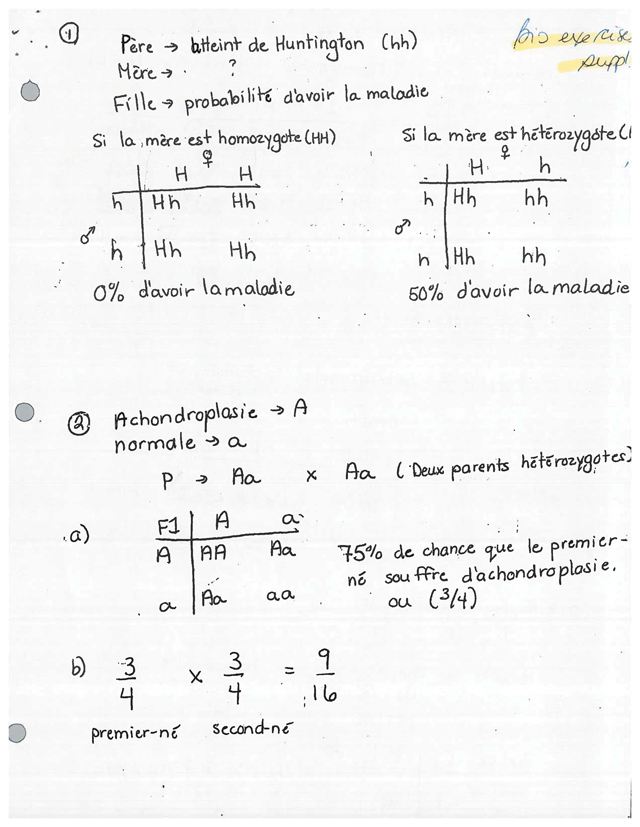 ① Père → atteint de Huntington (hh)
bio exercise
suppl.
Mère → ?
Fille → probabilité d'avoir la maladie
Si la mère est homozygote (HH)
♀
H H
h Hh Hh
♂
h Hh Hh
0% d'avoir la maladie
Si la mère est hétérozygote (
♀
H h
h Hh hh
♂
h Hh hh
50% d'avoir la maladie
② Achondroplasie → A
normale → a
P → Aa x Aa (Deux parents hétérozygotes)
a)
F1 A a
A AA Aa
a Aa aa
75% de chance que le premier-
né souffre d'achondroplasie.
ou (3/4)
b) 3/4 x 3/4 = 9/16
premier-né second-né